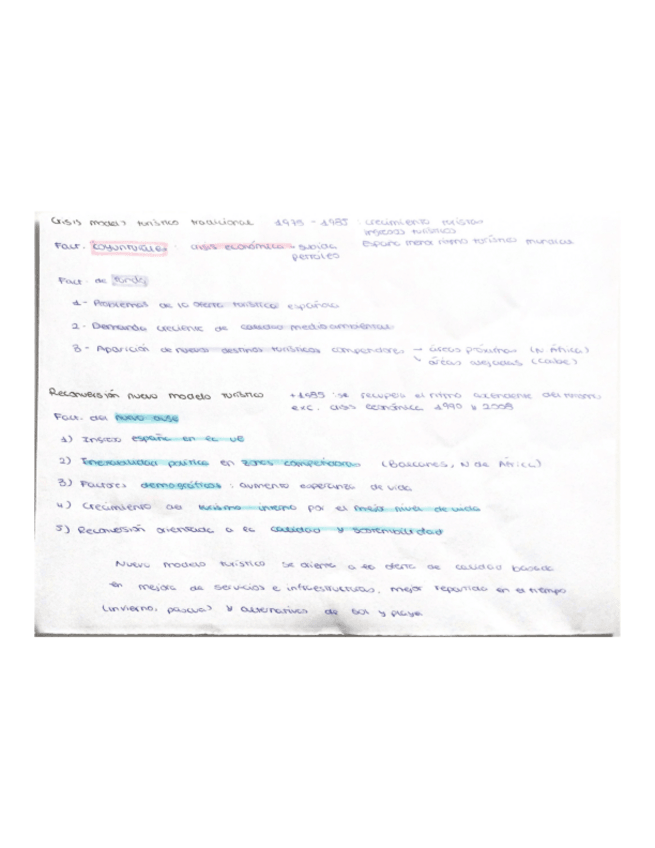 Crisis modelo turístico tradicional 1975 - 1985 : crecimiento turistas
ingresos turístico
Fact. coyunturales : crisis económica → subida España menor ritmo turístico mundial
petróleo
Fact. de fondo
1- Problemas de la oferta turística española
2- Demanda creciente de calidad medioambiental
3- Aparición de nuevos destinos turísticos competidores → áreas próximas (N. África)
↘ áreas alejadas (Caribe)
Reconversión nuevo modelo turístico +1985 : se recupera el ritmo ascendente del mismo
exc. crisis económica 1990 y 2008
Fact. del nuevo auge
1) Ingreso españa en la UE
2) Inestabilidad política en zonas competidoras (Balcanes, N de África)
3) Factores demográficos : aumento esperanza de vida
4) Crecimiento del turismo interno por el mejor nivel de vida
5) Reconversión orientada a la calidad y sostenibilidad
Nuevo modelo turístico se orienta a la oferta de calidad basada
en mejora de servicios e infraestructuras, mejor repartida en el tiempo
(invierno, pascua) y alternativas de sol y playa